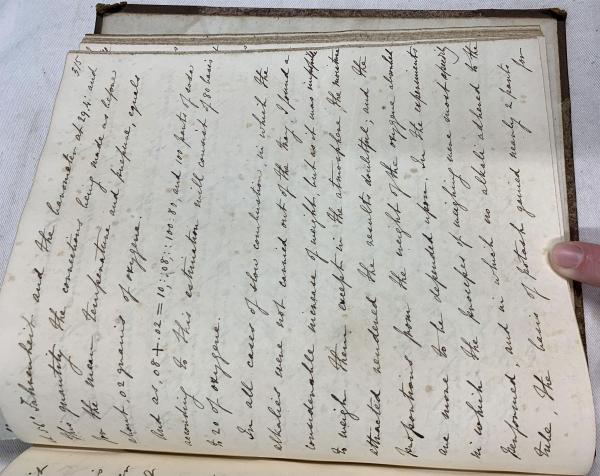 315
56° Fahrenheit and the barometer at 29.4: and
this quantity the corrections being made as before
for the mean temperature and pressure equals
about .02 grains of oxygene.
And as, .08 + .02 = 10; .08; :: 100 : 80, and 100 parts of soda
according to this estimation will consist of 80 basis &
to 20 of oxygene.
In all cases of slow combustion in which the
alkalies were not carried out of the tray, I found a
considerable increase of weight, but as it was impossible
to weigh them except in the atmosphere the moisture
attracted rendered the results doubtful; and the
proportions from the weight of the oxygene absorbed
are more to be depended upon. In the experiments
in which the processes of weighing were most speedily
performed, and in which no alkali adhered to the
tube, the basis of potash gained nearly 2 parts for